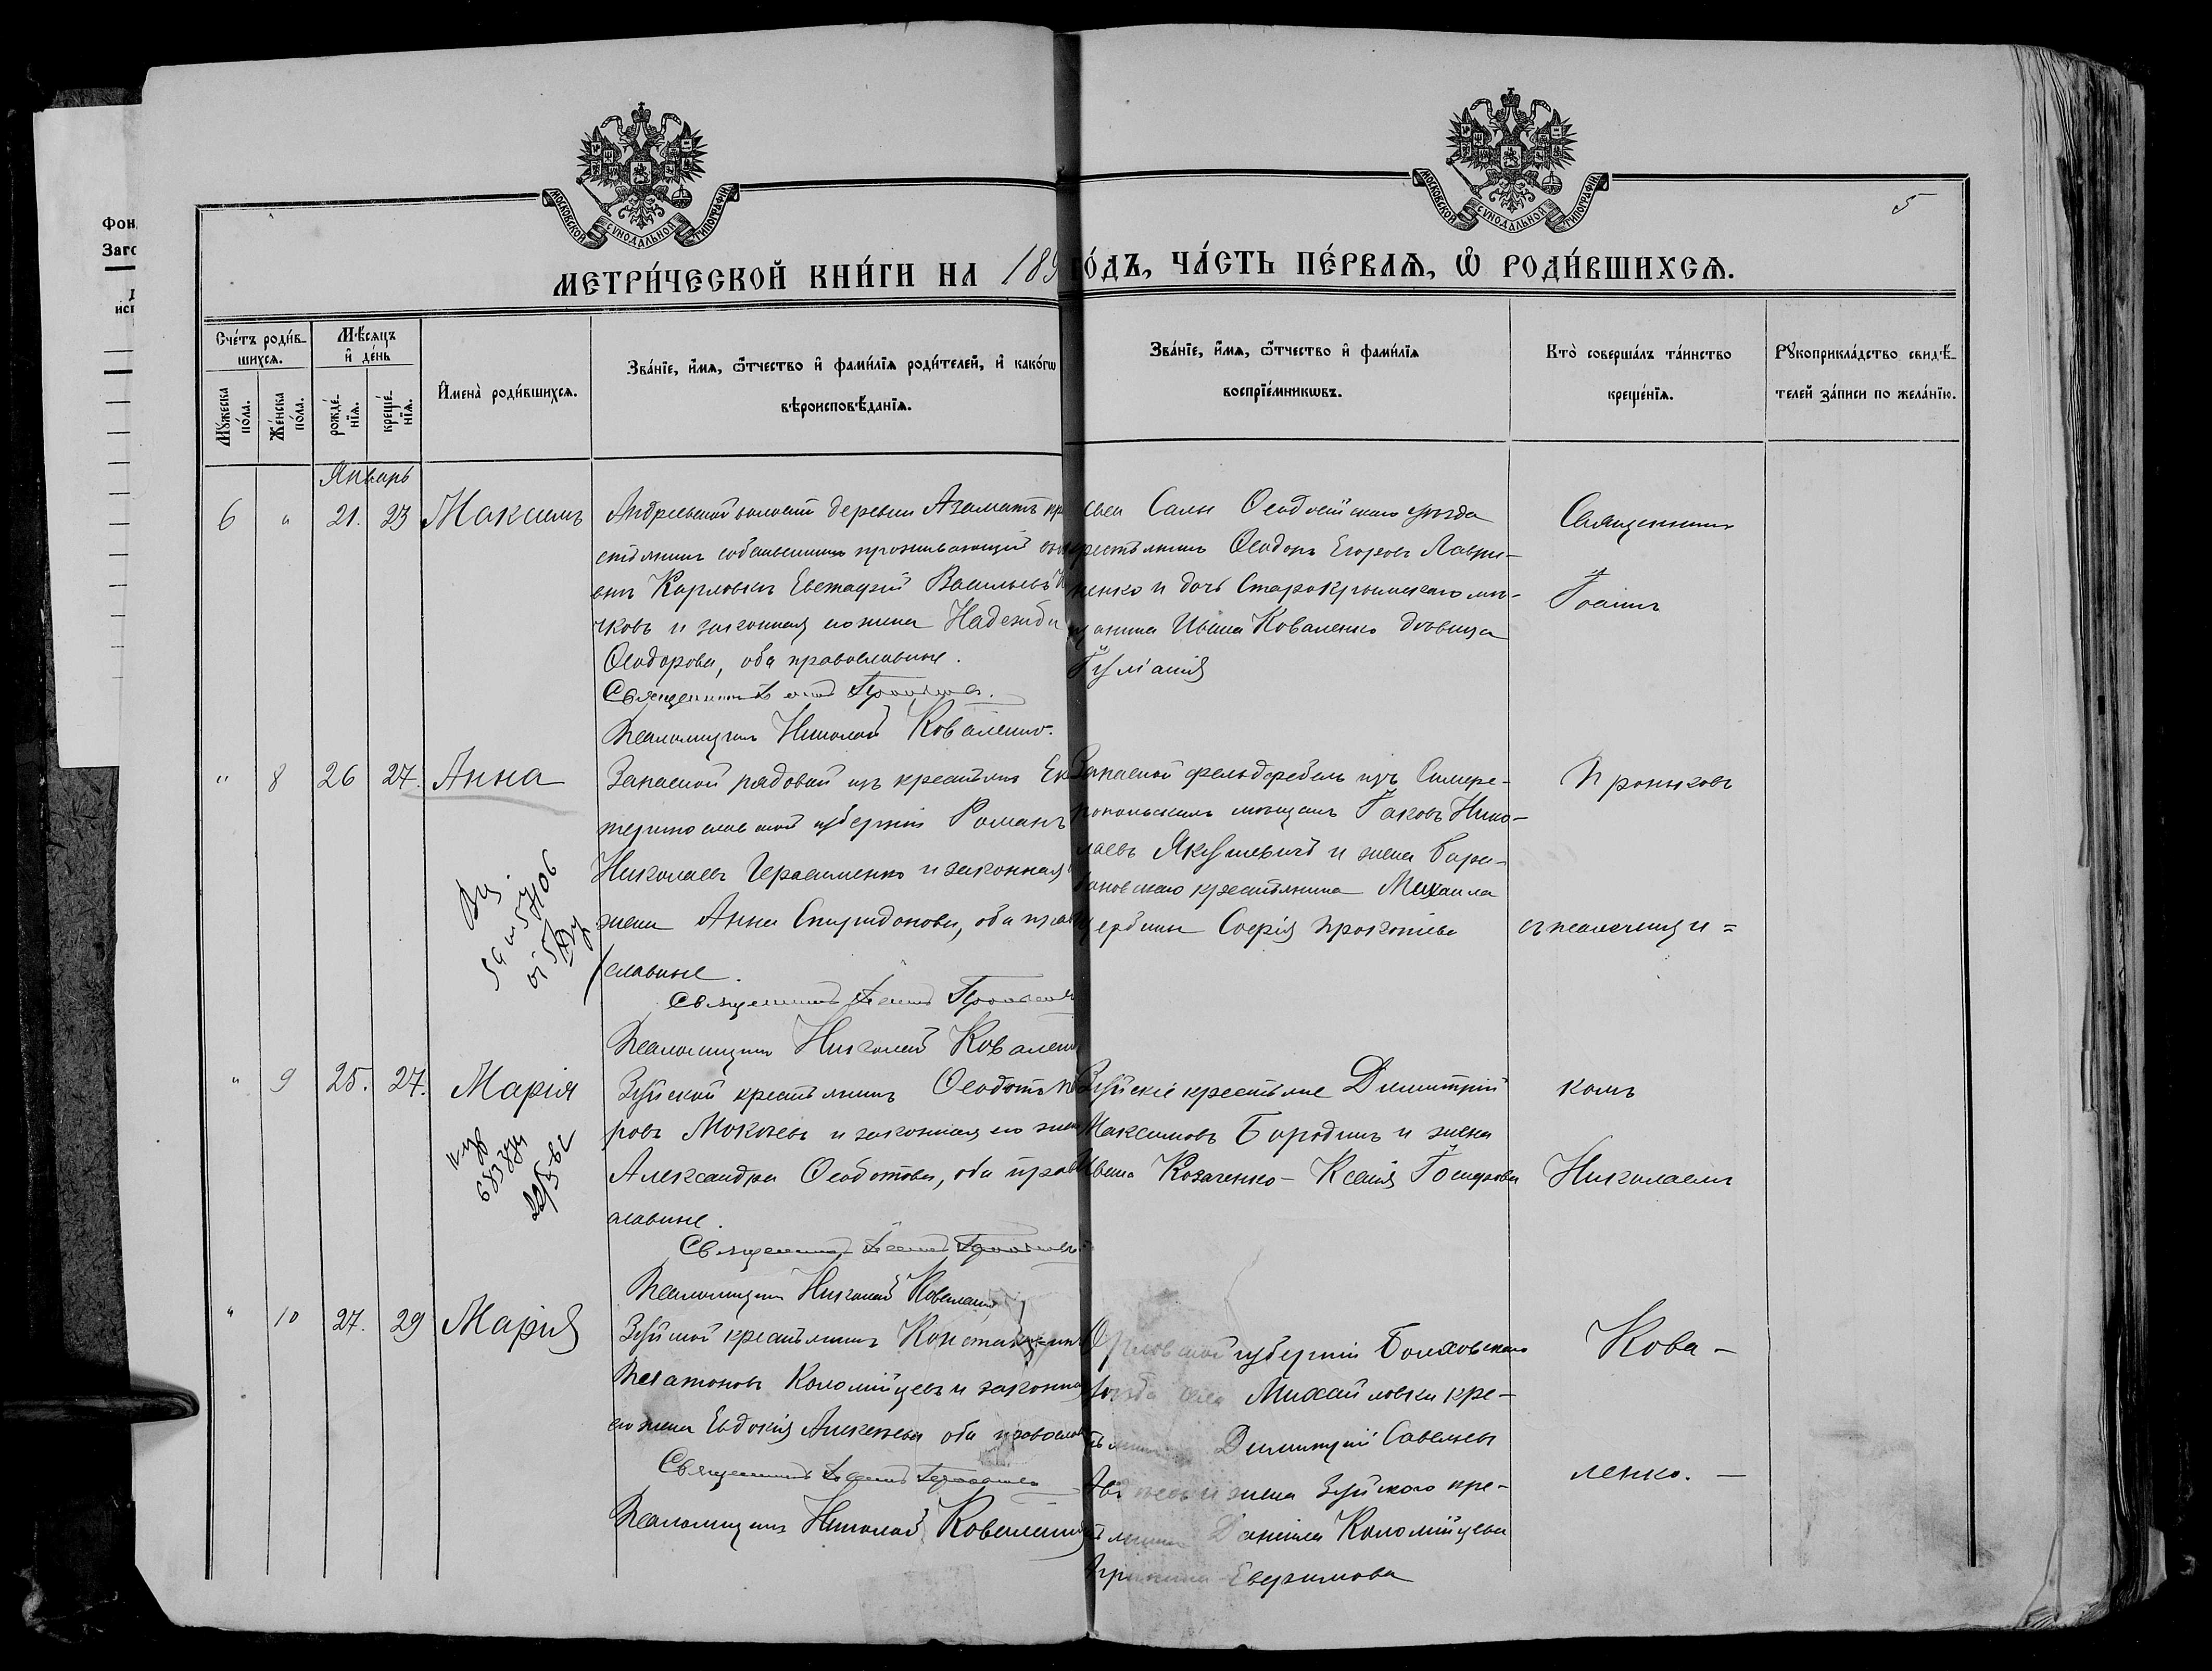 Фон
Заго
МОСКОВСКОЙ СѴНОДАЛЬНОЙ ТИПОГРАФІИ
МОСКОВСКОЙ СѴНОДАЛЬНОЙ ТИПОГРАФІИ
5
МЕТРИ́ЧЕСКОЙ КНИ́ГИ НА 189 ГО́ДЪ, ЧА́СТЬ ПЕ́РВАѦ, Ѡ҆ РОДИ́ВШИХСѦ.
Сче́тъ роди́в-
шихсѧ.
Мꙋ́жеска по́ла.
Же́нска по́ла.
Мѣ́сѧцъ
и҆ де́нь
рожде́-
нїѧ.
креще́-
нїѧ.
И҆мена̀ роди́вшихсѧ.
Зва́нїе, и҆́мѧ, ѻ҆́тчество и҆ фами́лїѧ роди́телей, и҆ како́гѡ
вѣроисповѣ́данїѧ.
Зва́нїе, и҆́мѧ, ѻ҆́тчество и҆ фами́лїѧ
воспрїе́мникѡвъ.
Кто̀ соверша́лъ та́инство
креще́нїѧ.
Рꙋкоприкла́дство свидѣ́-
телей за́писи по жела́нїю.
Январь
6 " 21. 23 Максимъ
Андреевской волости деревни Азаматъ кр
стьянинъ собственникъ проживающій
Карловкѣ Евстафій Васильевъ
чковъ и законная его жена Надежда
Ѳеодорова, оба православные.
Священникъ Іоаннъ Проньковъ.
Псаломщикъ Николай Коваленко.
Салы Ѳеодосійскаго уѣзда
крестьянинъ Ѳеодоръ Егоровъ Лаври-
ненко и дочь Старокрымскаго мѣ-
щанина Ивана Коваленко дѣвица
Іуліанія
Священникъ
Іоаннъ
" 8 26 27. Анна
Запасной рядовой изъ крестьянъ Ек
теринославской губерніи Романъ
Николаевъ Герасименко и законная
жена Анна Спиридонова, оба прав
славные.
Священникъ Іоаннъ Проньковъ
Псаломщикъ Николай Коваленк
Запасной фельдфебель изъ Симфе-
ропольскихъ мѣщанъ Іаковъ Нико-
лаевъ Якушевичъ и жена Бара-
бановскаго крестьянина Михаила
Щербины Софія Прокопіева
Проньковъ
съ псаломщи=
" 9 25. 27. Марія
Зуйской крестьянинъ Ѳеодотъ
ровъ Мокѣевъ и законная его жен
Александра Ѳеодотова, оба прав
славные.
Священникъ Іоаннъ Проньковъ
Псаломщикъ Николай Коваленко
Зуйскіе крестьяне Димитрій
Максимовъ Бородинъ и жена
Ивана Козаченко - Ксенія Іосифова
комъ
Николаемъ
" 10 27. 29 Марія
Зуйской крестьянинъ Константинъ
Платоновъ Коломійцевъ и законная
его жена Евдокія Алексѣева оба правосла
Священникъ Іоаннъ Проньковъ
Псаломщикъ Николай Коваленко
Орловской губерніи Болховскаго
уѣзда села Михайловки кре-
стьянинъ Димитрій Савельевъ
и жена Зуйскаго кре-
стьянина Даніила Коломійцева
Евфимова
Кова-
ленко. -